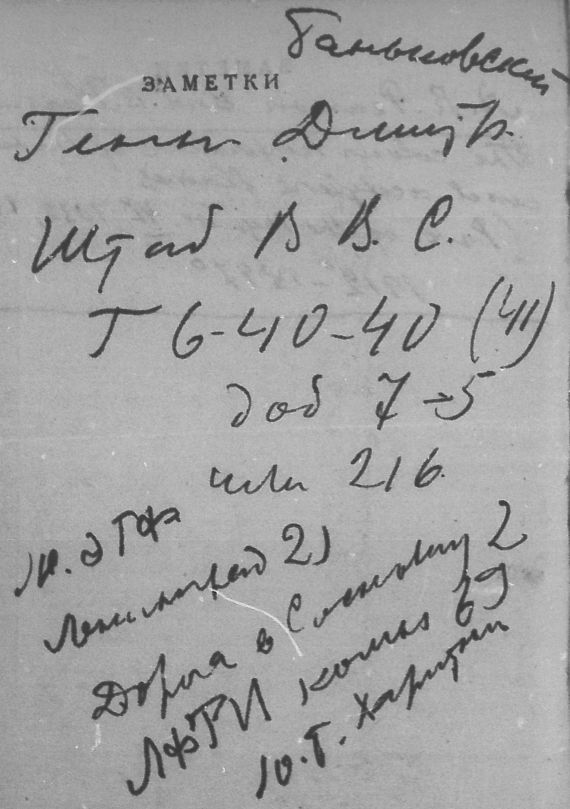 ЗАМЕТКИ
Штаб В В. С.
Т 6-40-40 (41)
доб 7-5
или 216
Ленинград 21
Дорога в Сосновку 2
ЛФТИ комн 69
Ю. Б. Харитон